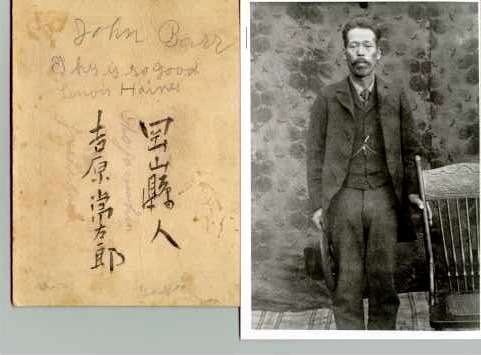 John Barr
he is so good
Lenois Haines
岡山縣人
吉原常太郎